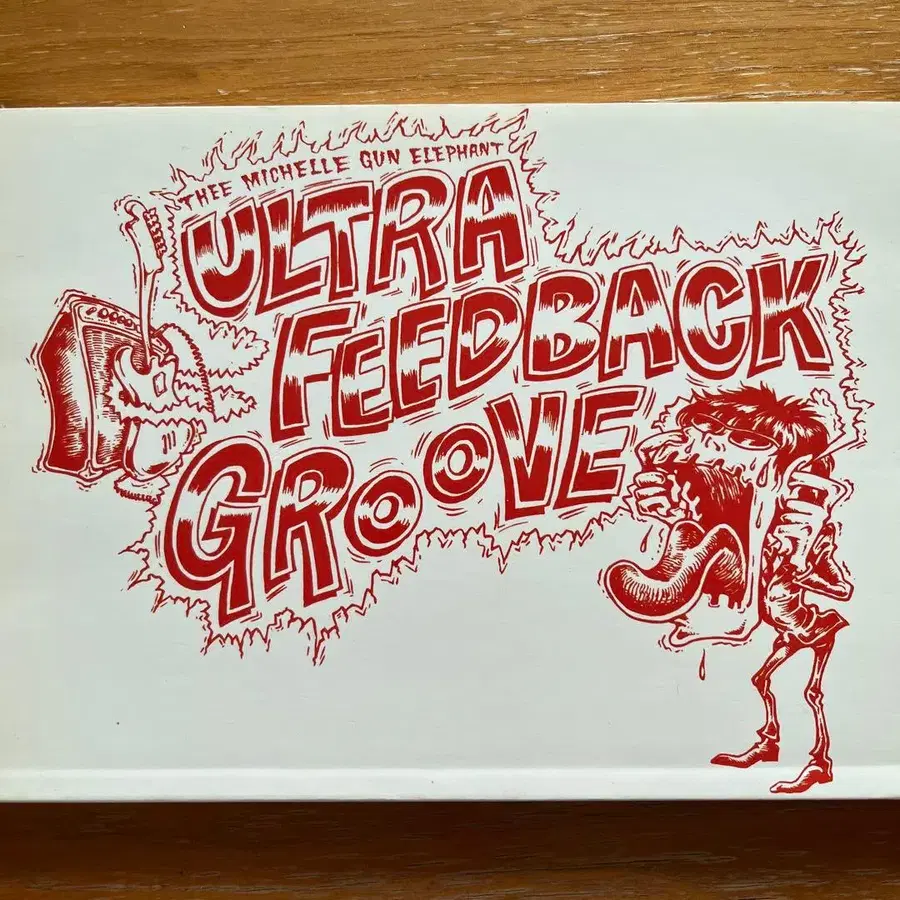 THEE MICHELLE GUN ELEPHANT
ULTRA
FEEDBACK
GROOVE